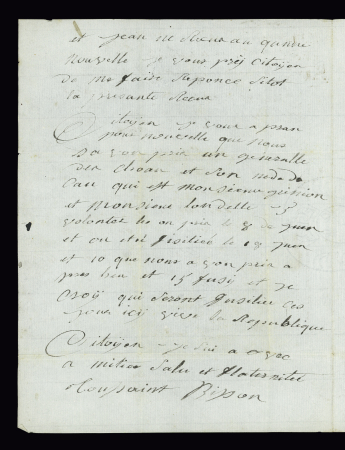 et jean
nouvelle je vous prie Citoyen
de me faire Reponce sitot
la presante Recue
Citoyen je vous a pran
pour nouvelle que nous
a von prie un generalle
des chouan et son aide de
can qui est monsieur
et Monsieur
volonter les on prie le 8 juen
et on été fusilies le 13 juen
et 10 que nous a von prie a
pres heu et 15 fusi et je
croij qui seront fusilie ces
jours icij vive la Republique
Citoyen je sui a vec
a mitiee salu et fraternitee
toussaint Bisson